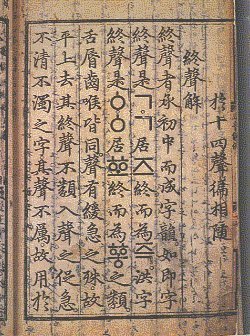 於十四聲徧相隨
終聲解
終聲者承初中而成字韻如即字
終聲是ㄱㄱ居즈終而為즉洪字
終聲是ㆁㆁ居ᅘᅩ終而為ᅘᅩᇰ之類
舌脣齒喉皆同聲有緩急之殊故
平上去其終聲不類入聲之促急
不清不濁之字其聲不厲故用於